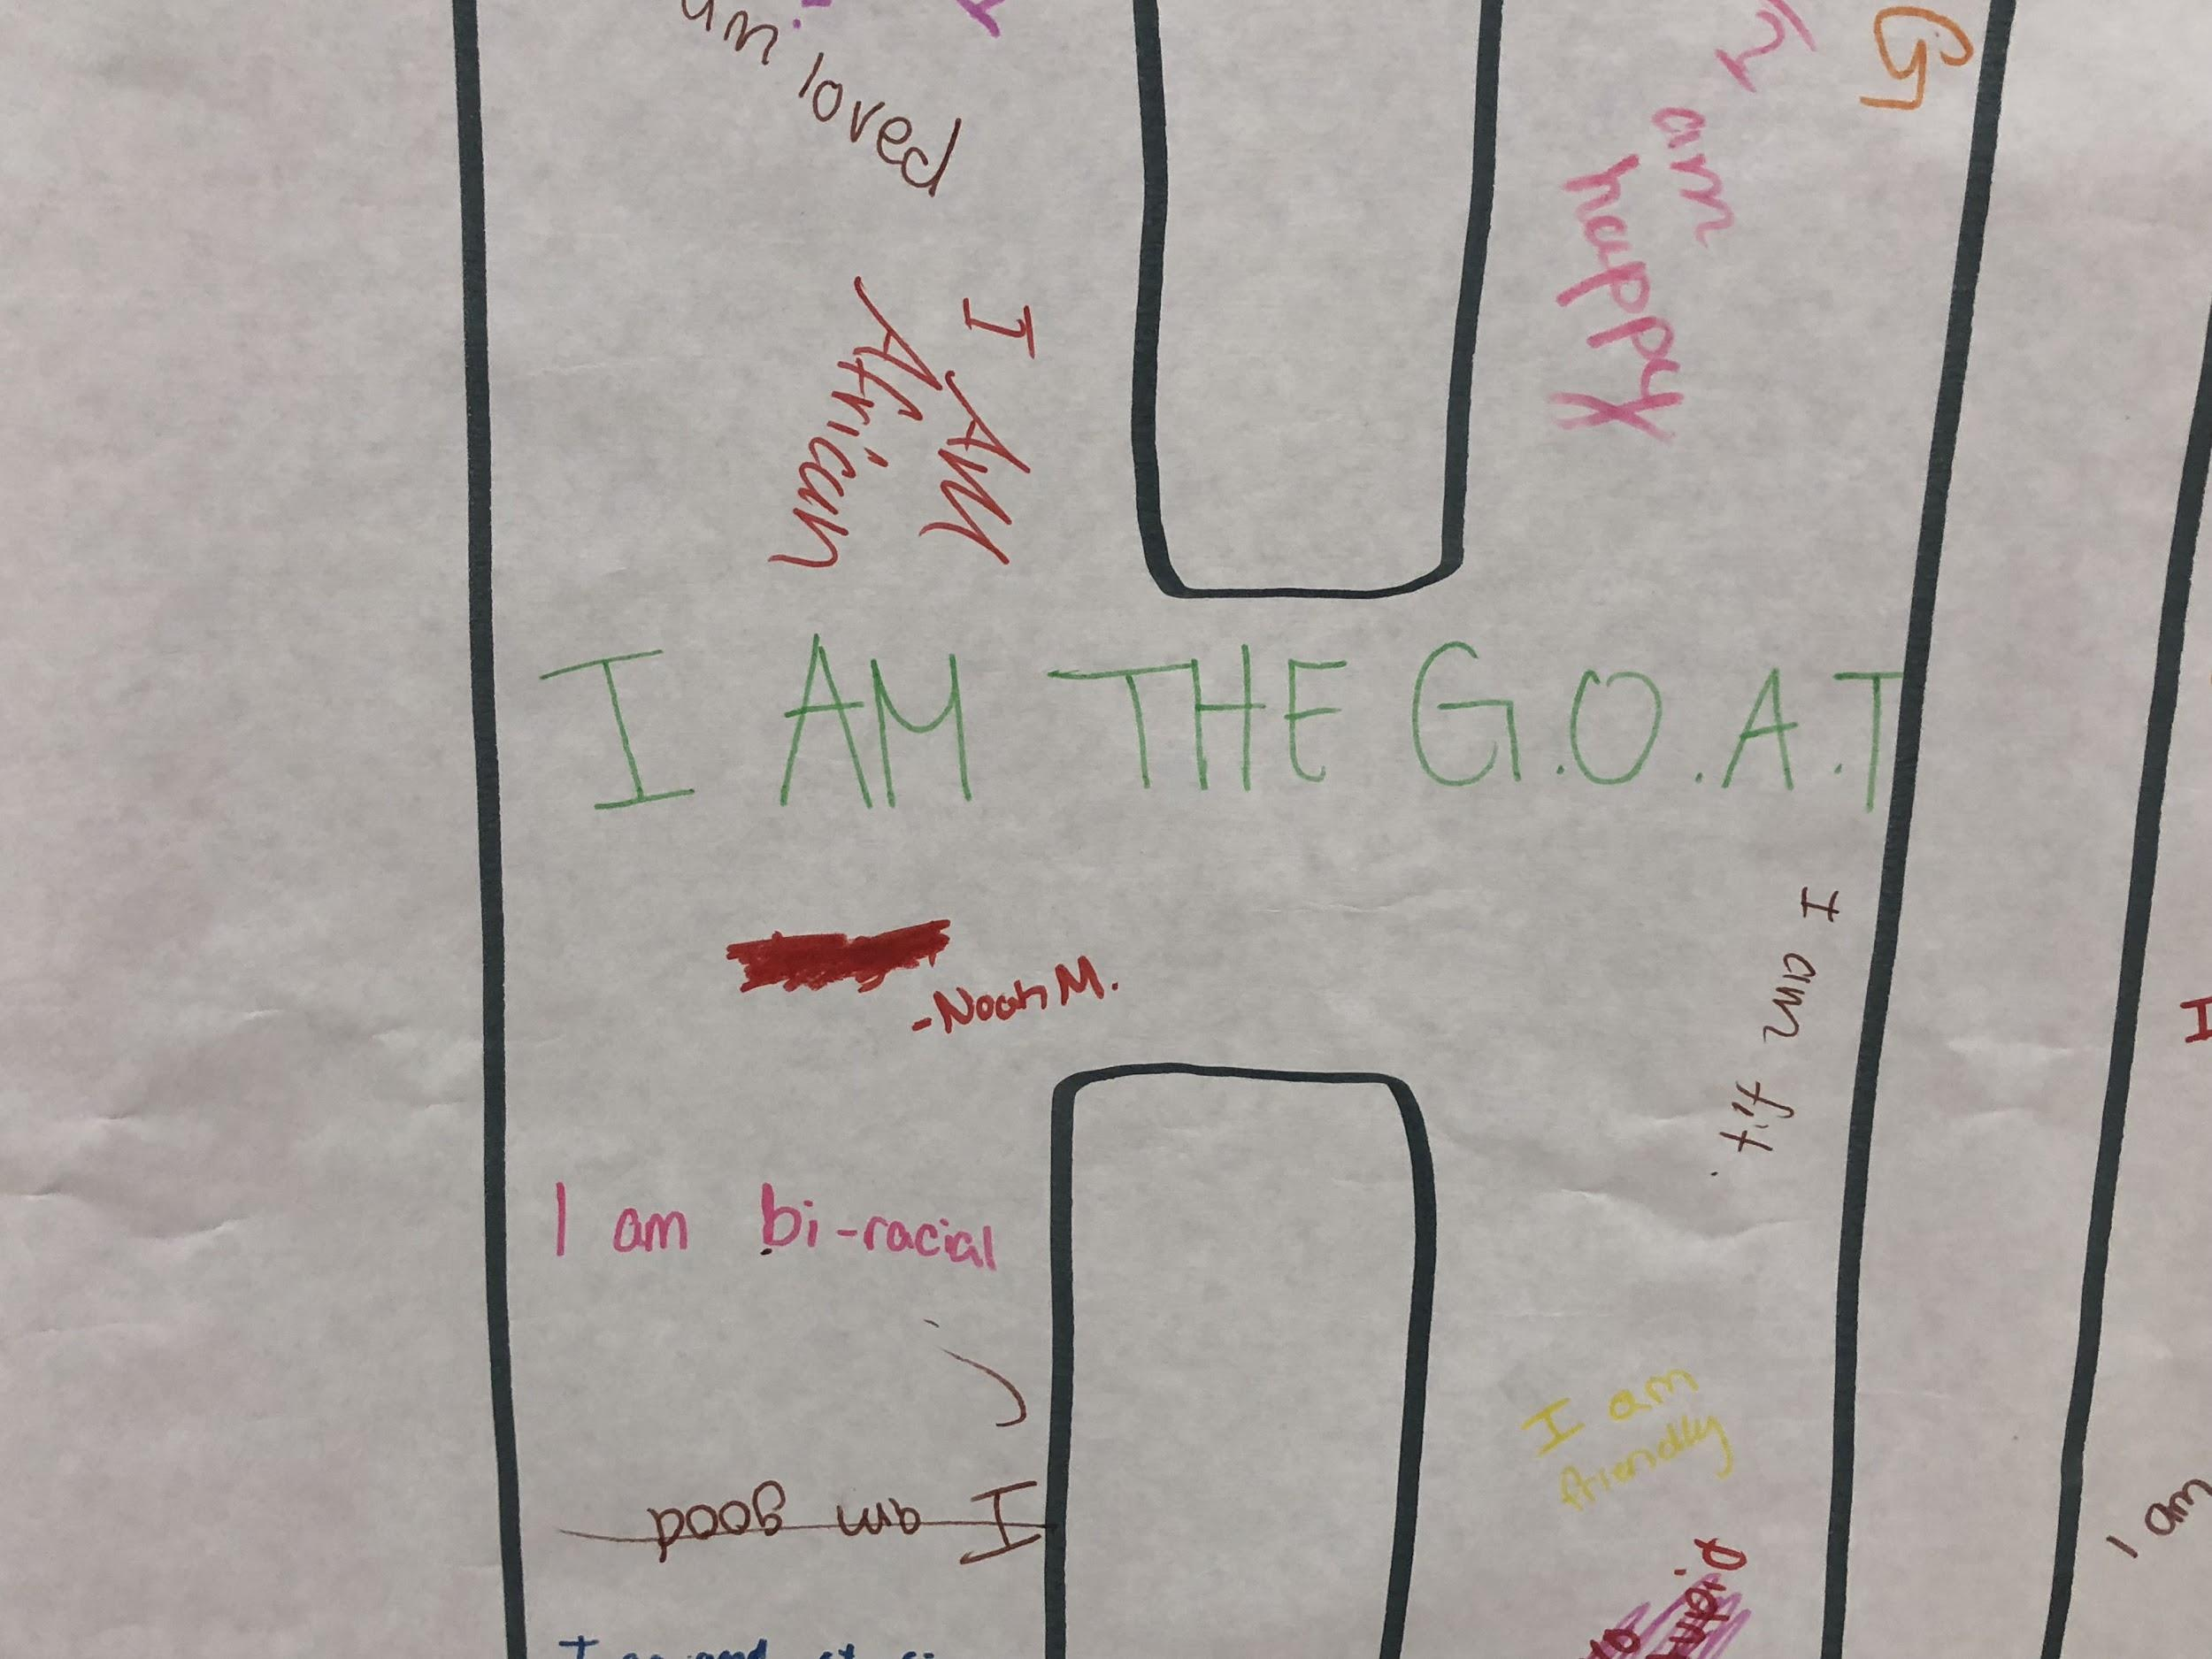 am loved
am
happy
I AM
African
I AM THE G.O.A.T
-Noah M.
I am fit.
I am bi-racial
I am
friendly
I am good
I am
I